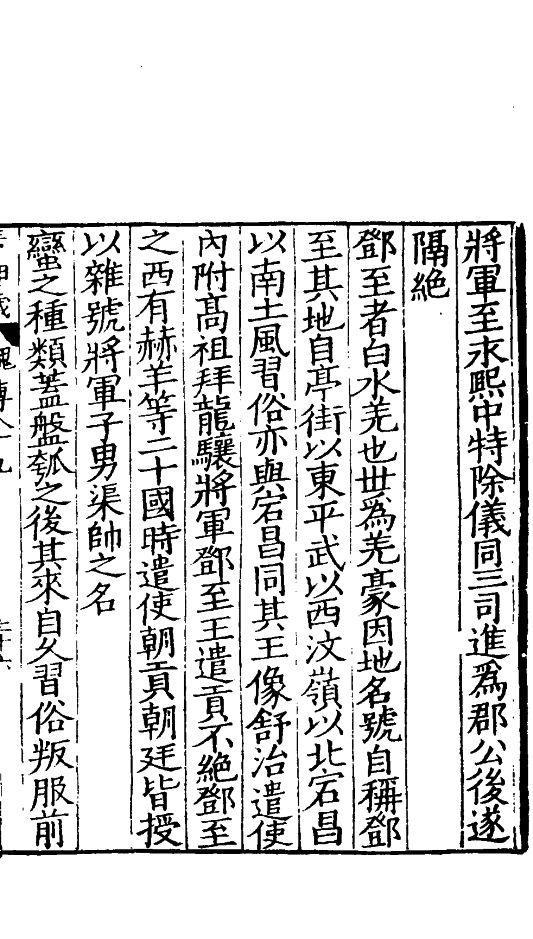 將軍至永熙中特除儀同三司進爲郡公後遂
隔絶
鄧至者白水羌也世爲羌豪因地名號自稱鄧
至其地自亭街以東平武以西汶嶺以北宕昌
以南土風習俗亦與宕昌同其王像舒治遣使
內附高祖拜龍驤將軍鄧至王遣貢不絶鄧至
之西有赫羊等二十國時遣使朝貢朝廷皆授
以雜號將軍子男渠帥之名
蠻之種類蓋盤瓠之後其來自久習俗叛服前